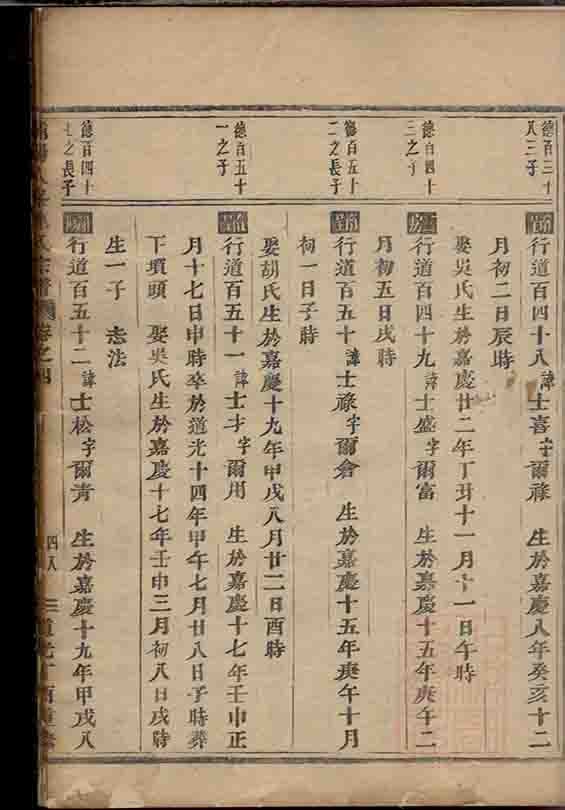 德百三十
八三子
行道百四十八諱士喜字爾祿 生於嘉慶八年癸亥十二
月初二日辰時
娶吳氏生於嘉慶廿二年丁丑十一月十一日午時
德百四十
三之子
行道百四十九諱士盛字爾富 生於嘉慶十五年庚午二
月初五日戌時
德百五十
二之長子
行道百五十諱士祿字爾倉 生於嘉慶十五年庚午十月
初一日子時
娶胡氏生於嘉慶十九年甲戌八月廿二日酉時
德百五十
一之子
行道百五十一諱士才字爾用 生於嘉慶十七年壬申正
月十七日申時卒於道光十四年甲午七月廿八日子時葬
下項頭 娶吳氏生於嘉慶十七年壬申三月初八日戌時
生一子 志法
德百四十
七之長子
行道百五十二諱士松字爾青 生於嘉慶十九年甲戌八
氏宗譜 卷之四
四八
道光丁酉重修